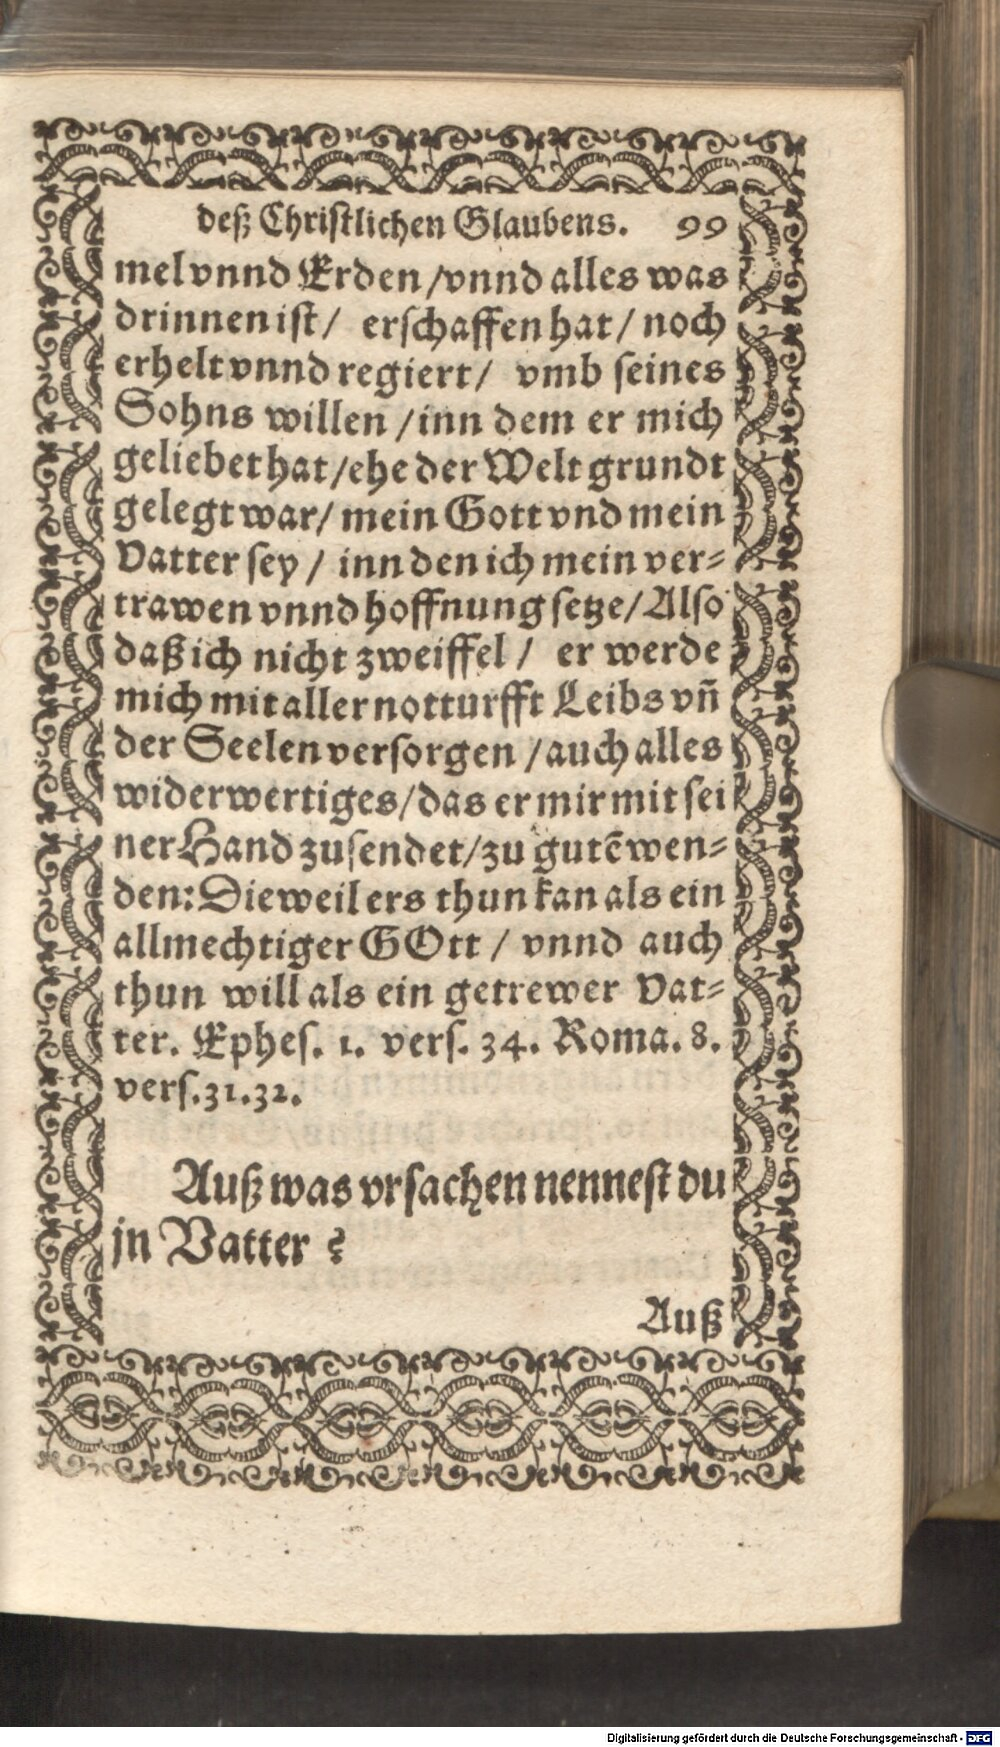 deß Christlichen Glaubens. 99
mel vnnd Erden / vnnd alles was
drinnen ist / erschaffen hat / noch
erhelt vnnd regiert / vmb seines
Sohns willen / inn dem er mich
geliebet hat / ehe der Welt grundt
gelegt war / mein Gott vnd mein
Vatter sey / inn den ich mein ver-
trawen vnnd hoffnung setze / Also
daß ich nicht zweiffel / er werde
mich mit aller notturfft Leibs vñ
der Seelen versorgen / auch alles
widerwertiges / das er mir mit sei
ner Hand zusendet / zu gutẽ wen-
den: Dieweil ers thun kan als ein
allmechtiger GOtt / vnnd auch
thun will als ein getrewer Vat-
ter. Ephes. 1. vers. 34. Roma. 8.
vers. 31. 32.
Auß was vrsachen nennest du
jn Vatter?
Auß
Digitalisierung gefördert durch die Deutsche Forschungsgemeinschaft - DFG